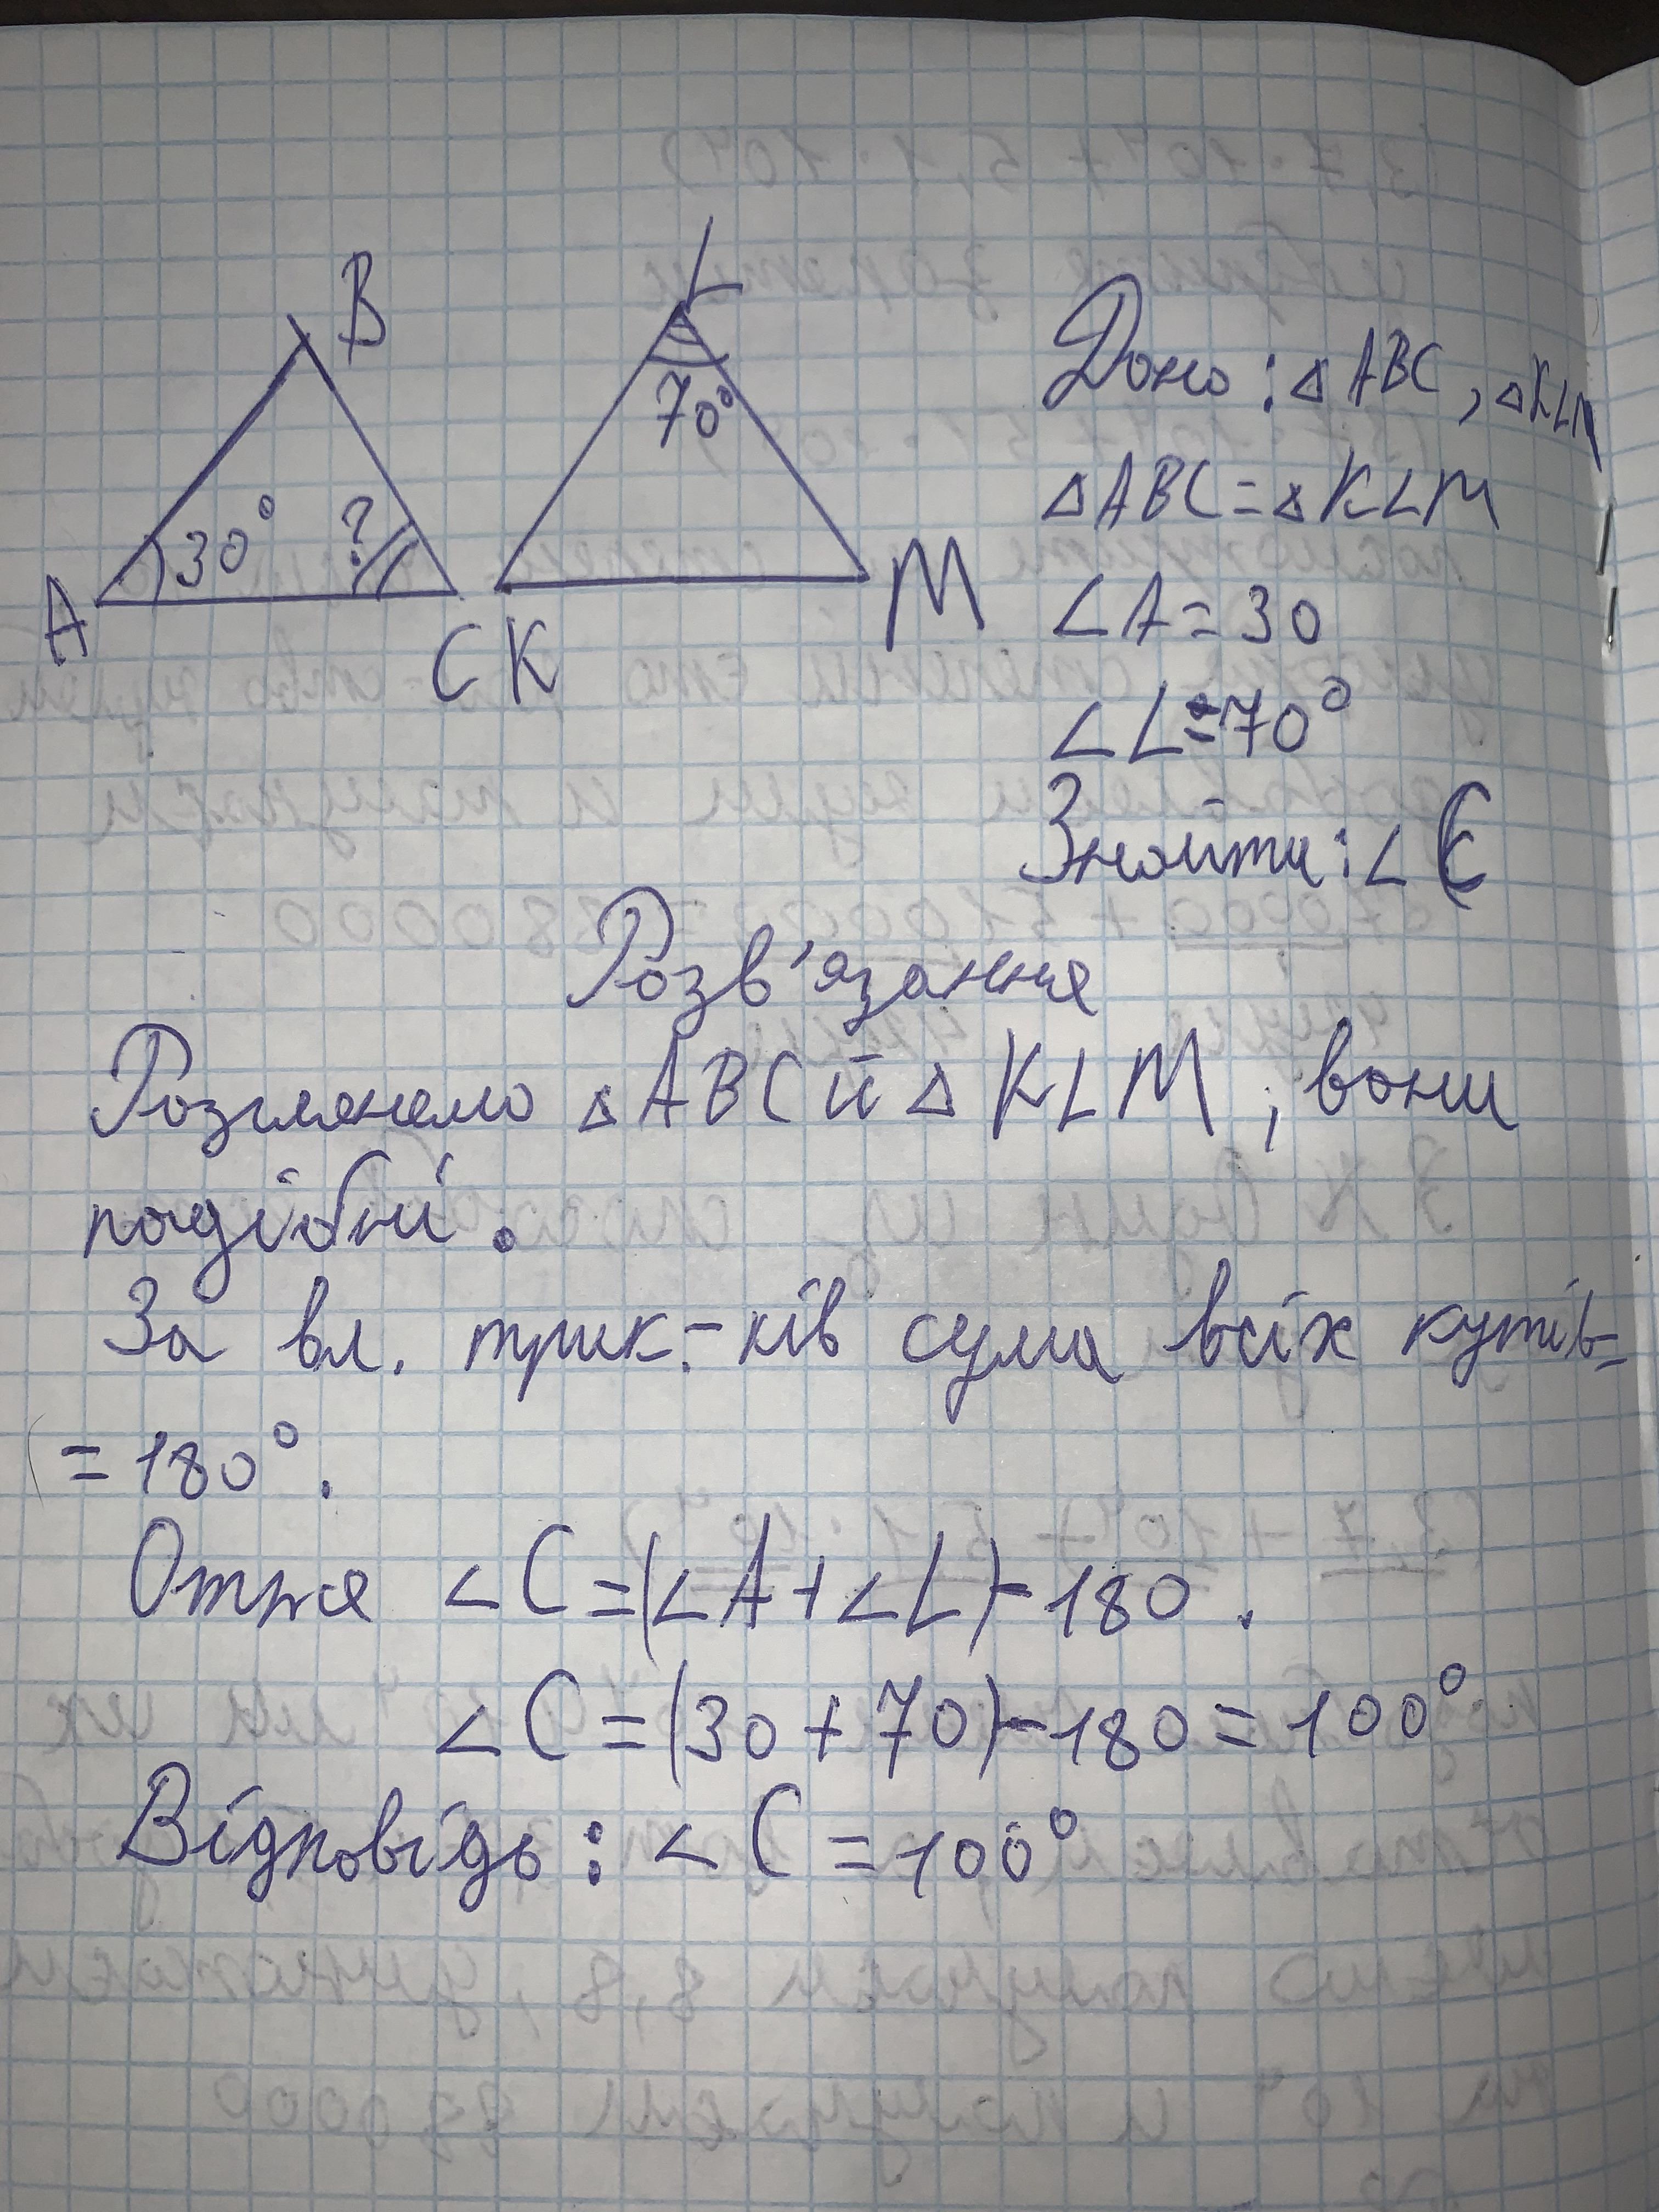 B
L
70°
30°
?
A
C
K
M
Дано: △ABC, △KLM
△ABC=△KLM
∠A=30
∠L=70°
Знайти: ∠C
Розв'язання
Розглянемо △ABC й △KLM, вони
подібні.
За вл. трик.-ків сума всіх кутів=
=180°.
Отже ∠C=(∠A+∠L)-180.
∠C=(30+70)-180=100°
Відповідь: ∠C=100°